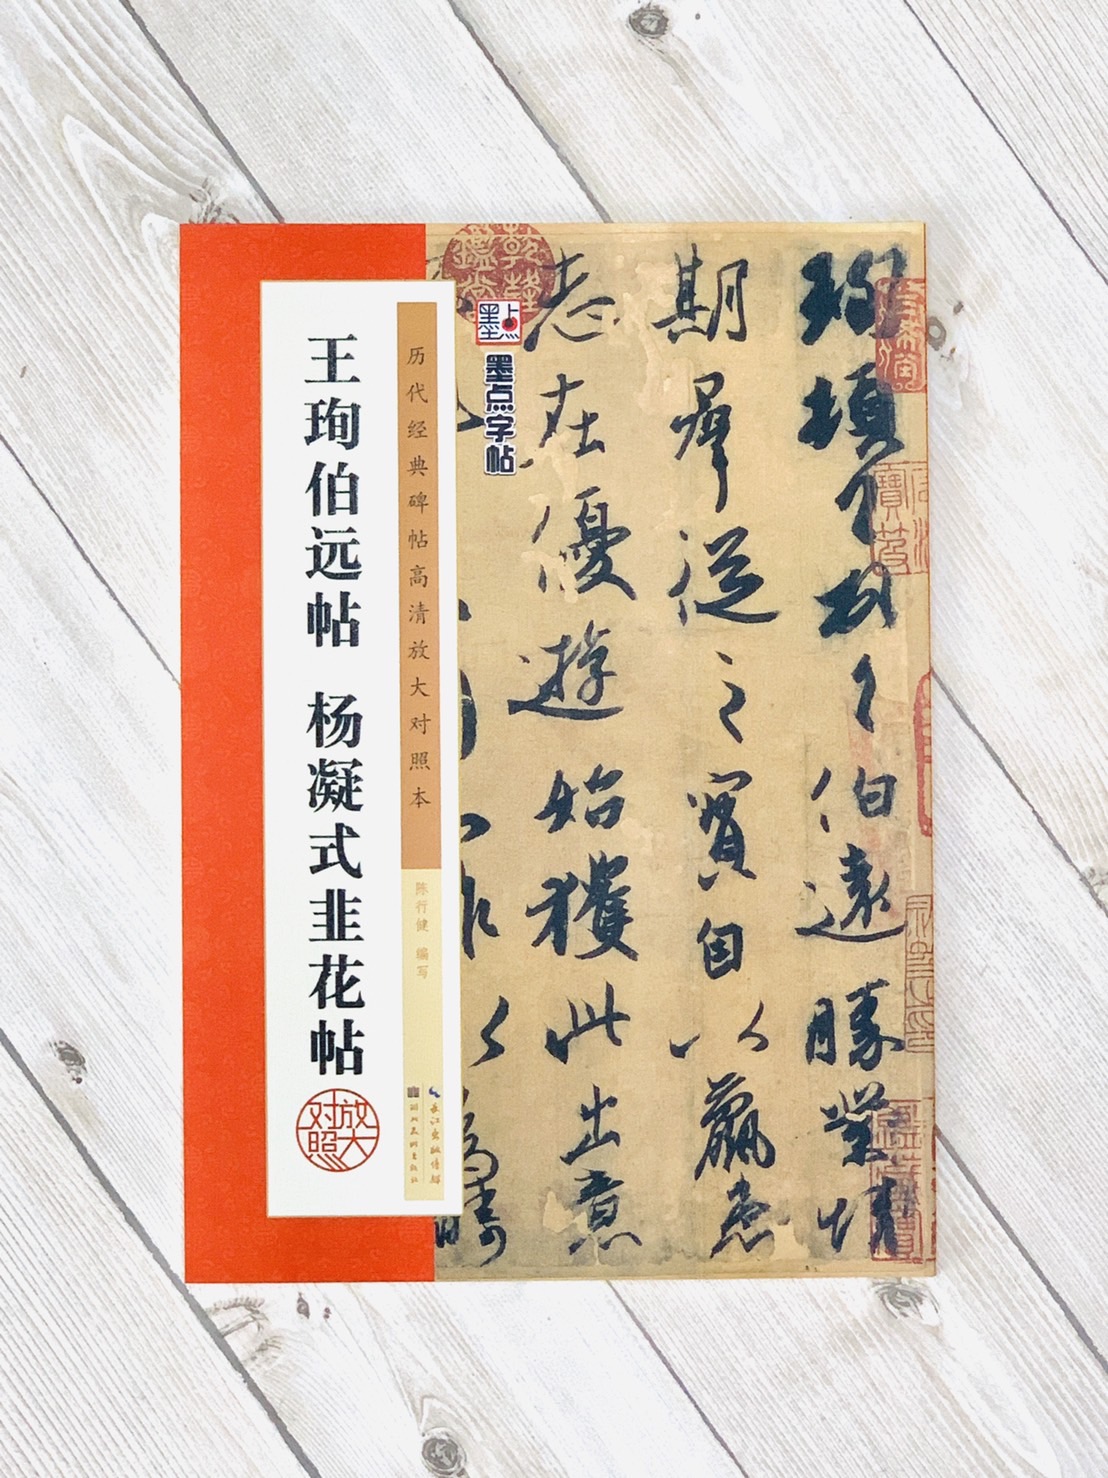 王珣伯远帖 杨凝式韭花帖
放大对照
历代经典碑帖高清放大对照本
陈行健 编写
长江出版传媒
湖北美术出版社
墨点
墨点字帖
珣頓首頓首伯遠勝業情
期群從之寶自以羸患
志在優游始獲此出意